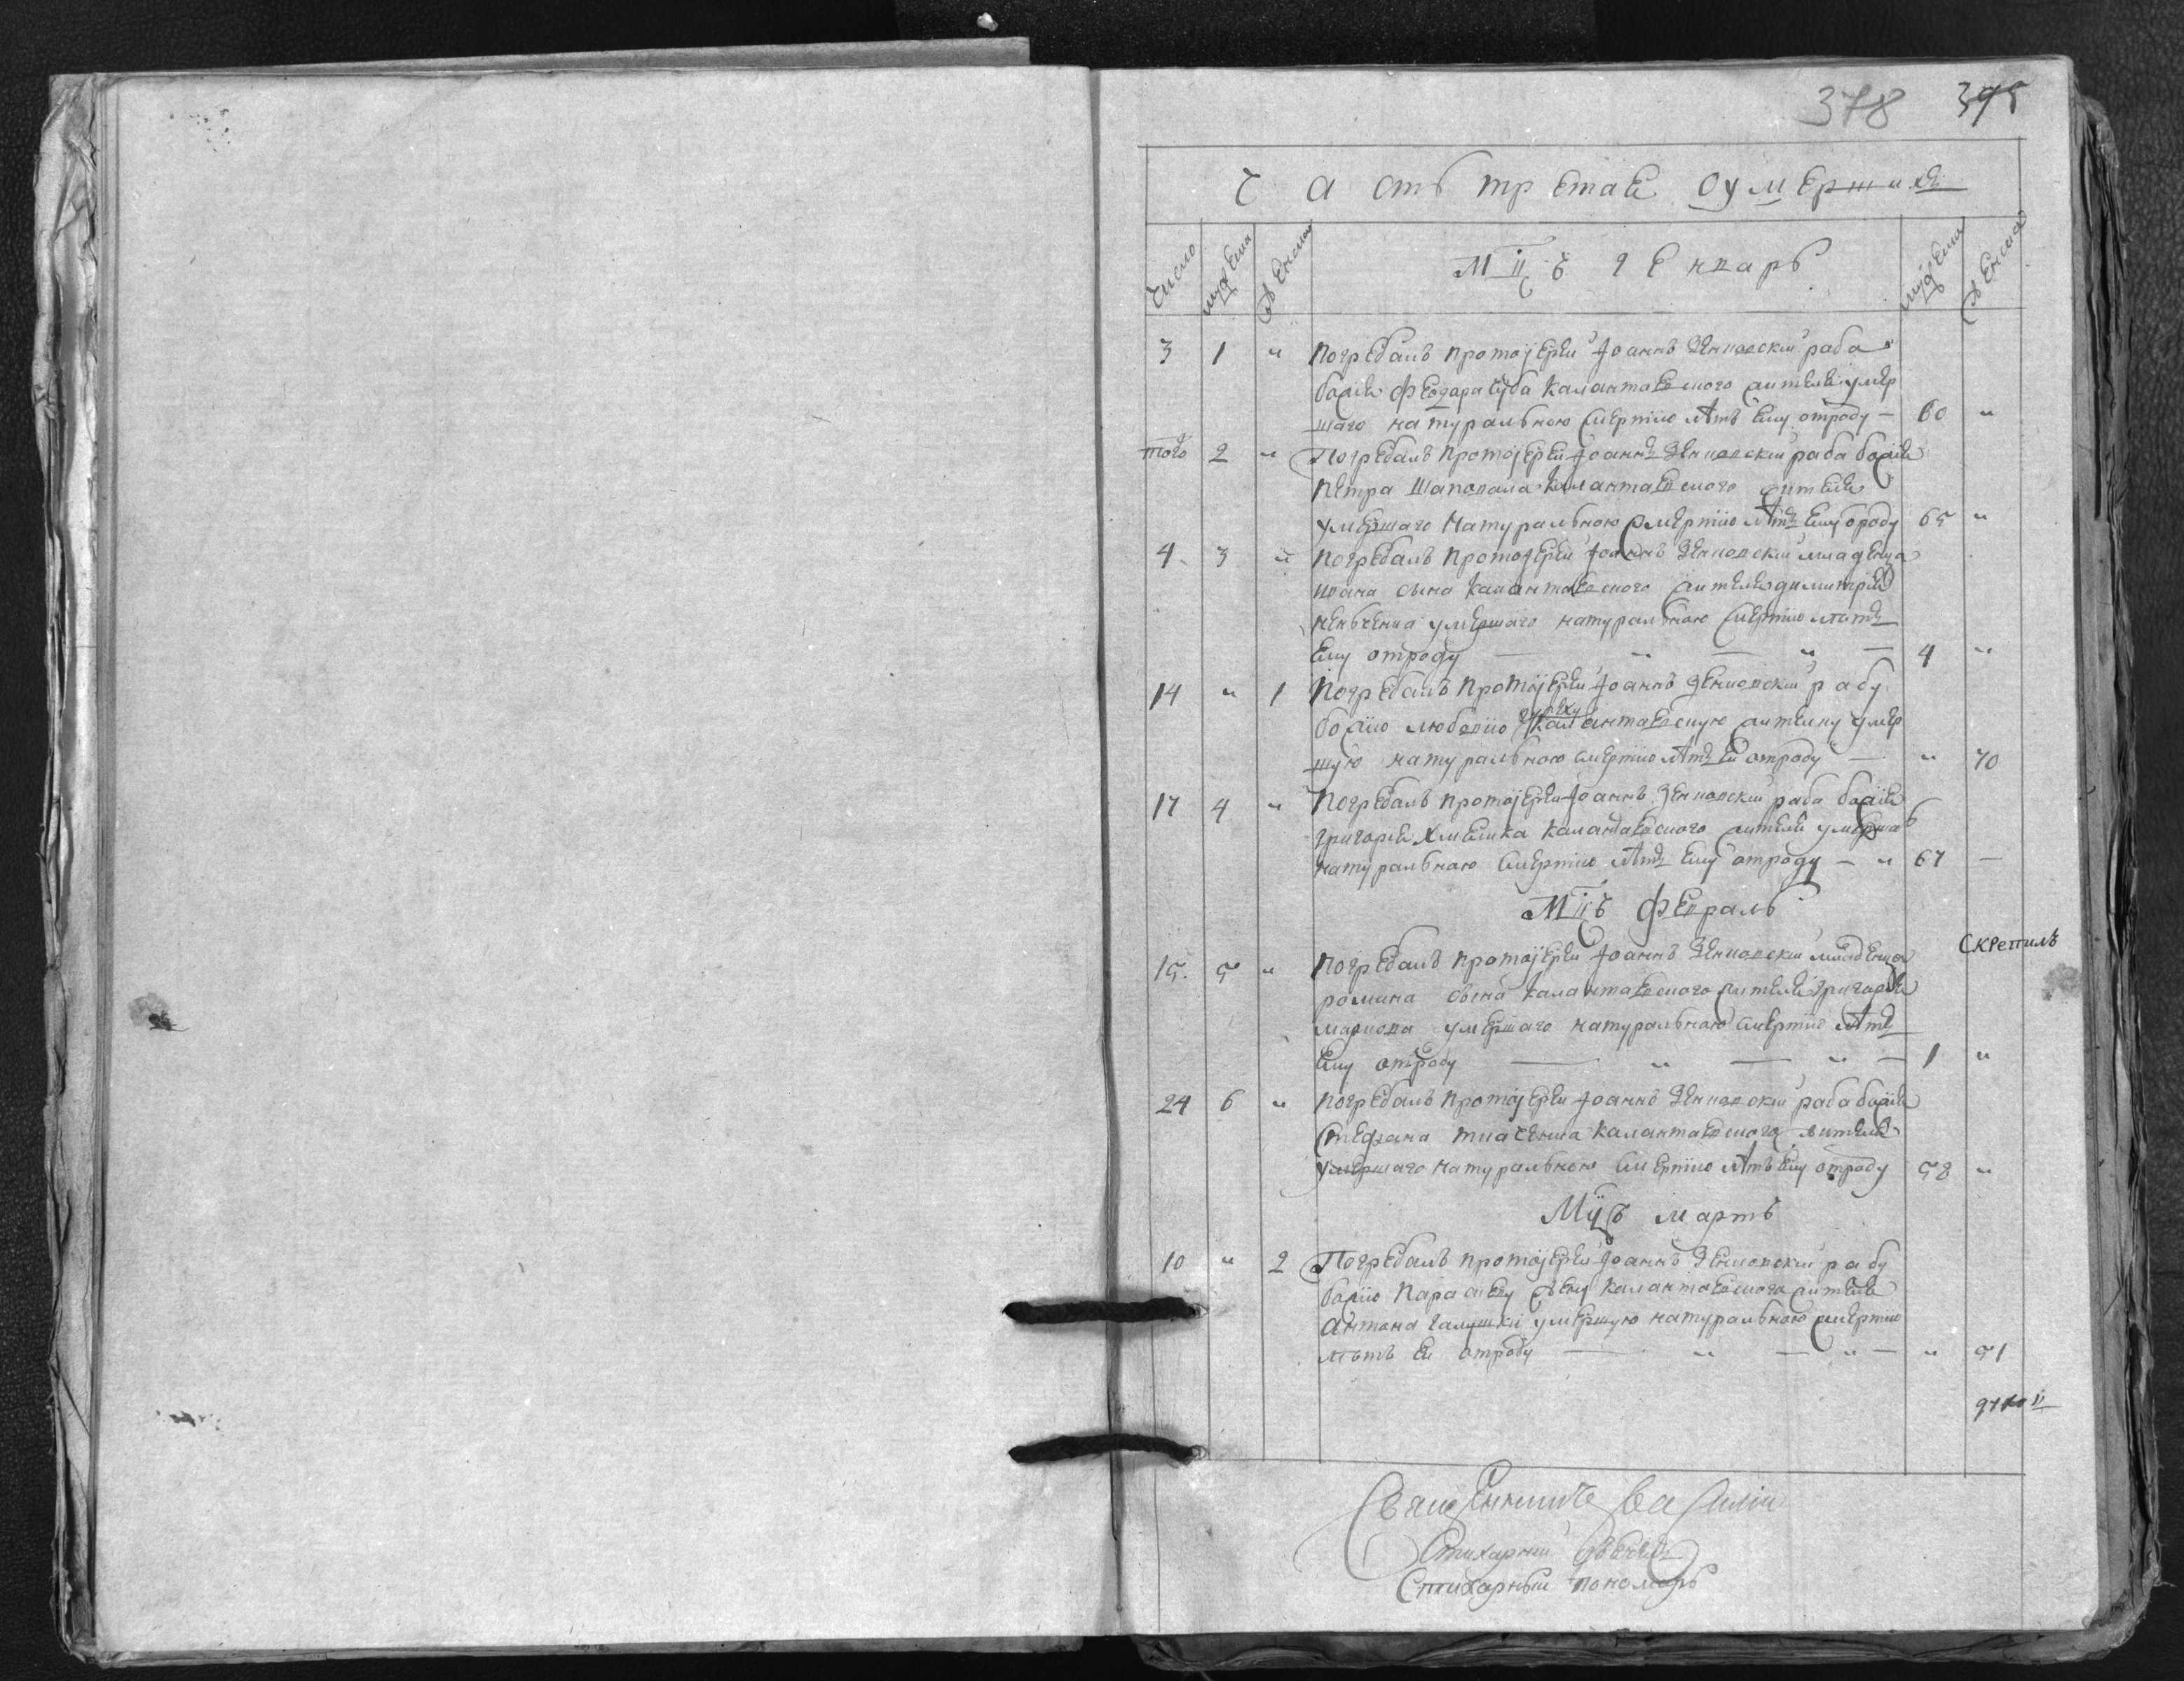 378 395
Часть третая оумершихъ
Число мужеска женска Мцъ Генварь мужеска женска
3 1 „ Погребалъ протоіерей Іоаннъ Зенковскій раба
божія Феодора Чуба калантаевского жителя умер
шаго натуральною смертію лѣтъ ему отроду — 60 „
того 2 „ Погребалъ протоіерей Іоаннъ Зенковскій раба божія
Петра Шаповала калантаевского жителя
умершаго натуральною смертію лѣтъ ему отроду 65 „
4 3 „ Погребалъ протоіерей Іоаннъ Зенковскій младенца
ивана сына калантаевского жителя димитрія
умершаго натуральною смертію лѣтъ
ему отроду — „ — „ — 4 „
14 „ 1 Погребалъ протоіерей Іоаннъ Зенковскій рабу
божію любовію калантаевскую жителку умер
шую натуральною смертію лѣтъ ей отроду — „ 70
17 4 „ Погребалъ протоіерей Іоаннъ Зенковскій раба божія
григорія Хмелика калантаевского жителя умерша
натуральною смертію лѣтъ ему отроду — „ 67 —
Мцъ Февраль
Скрепилъ
15. 5 „ Погребалъ протоіерей Іоаннъ Зенковскій младенца
романа сына калантаевского жителя григорія
умершаго натуральною смертію лѣтъ
ему отроду — „ — „ — 1 „
24 6 „ Погребалъ протоіерей Іоаннъ Зенковскій раба божія
Стефана Ткаченка калантаевского жителя
умершаго натуральною смертію лѣтъ ему отроду 58 „
Мцъ Мартъ
10 „ 2 Погребалъ протоіерей Іоаннъ Зенковскій рабу
божію Параскеву жену калантаевского жителя
антона галушки умершую натуральною смертію
лѣтъ ей отроду — „ — „ — „ 51
Священникъ Василій
Стихарный дьячекъ
Стихарный пономарь